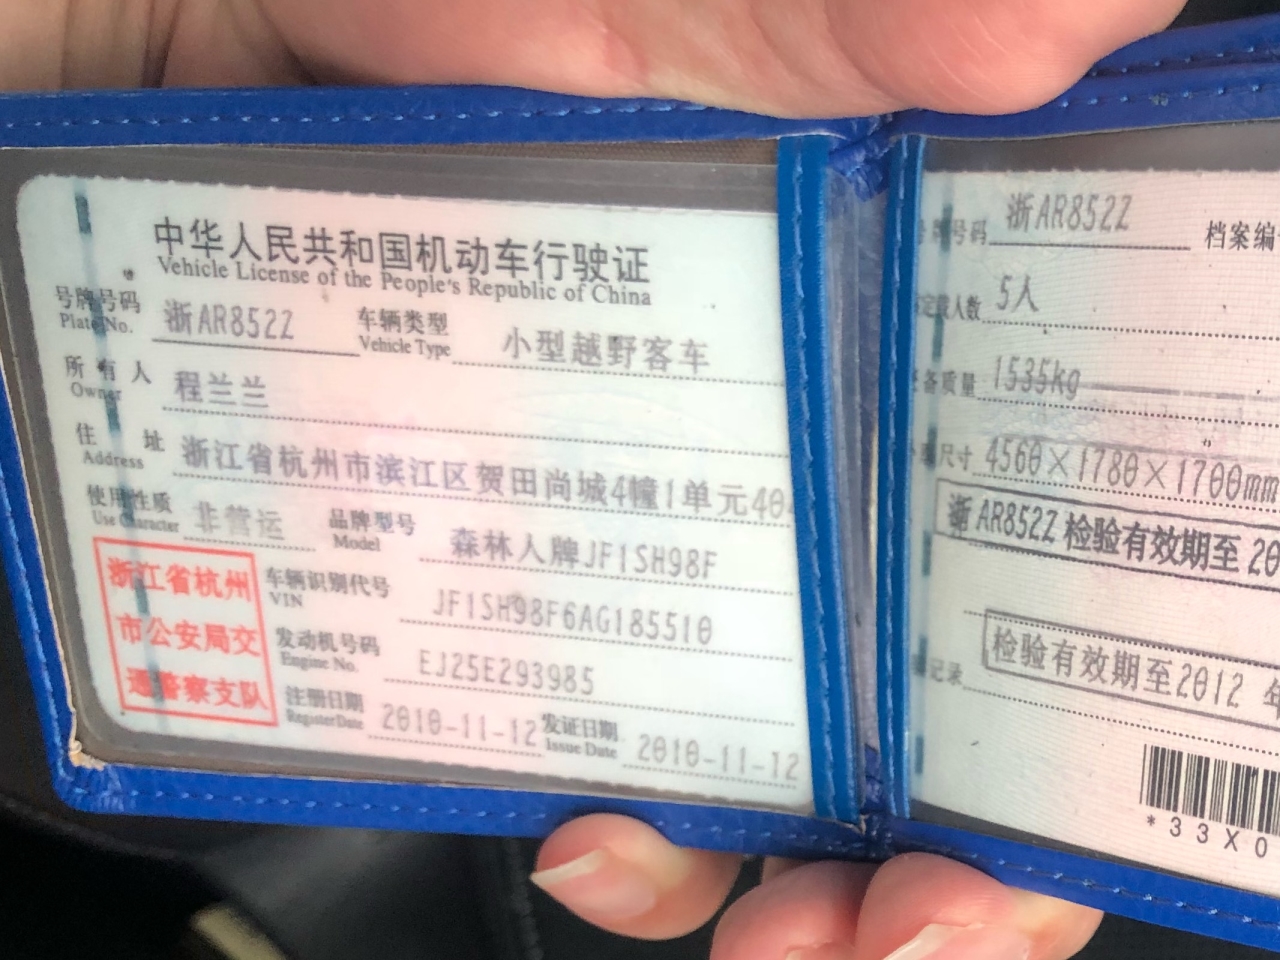 中华人民共和国机动车行驶证
Vehicle License of the People's Republic of China
号牌号码 浙AR852Z 车辆类型 小型越野客车
Plate No. Vehicle Type
所有人 程兰兰
Owner
住址 浙江省杭州市滨江区贺田尚城4幢1单元40
Address
使用性质 非营运 品牌型号 森林人牌JF1SH98F
Use Character Model
浙江省杭州
市公安局交
通警察支队
车辆识别代号 JF1SH98F6AG185510
VIN
发动机号码 EJ25E293985
Engine No.
注册日期 2010-11-12 发证日期 2010-11-12
Register Date Issue Date
号牌号码 浙AR852Z 档案编
定载人数 5人
备质量 1535kg
尺寸 4560×1780×1700mm
浙AR852Z 检验有效期至 20
检验有效期至2012 年
记录
*33X0